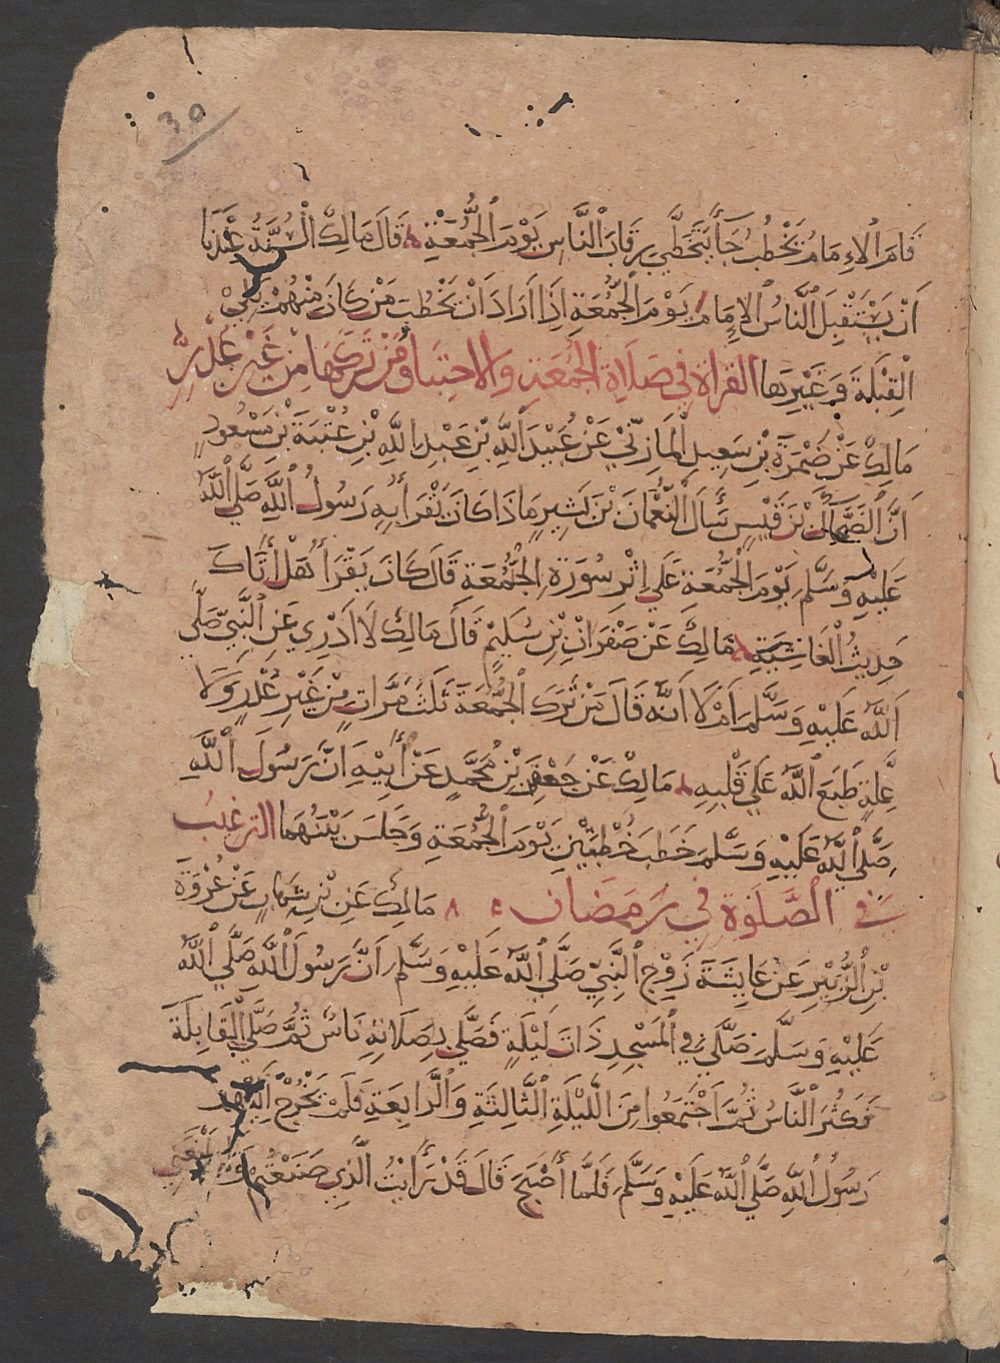 30
قَامَ ٱلاِمَامُ يَخْطُبُ جَآ يَتَخَطَّي رِقَابَ ٱلنَّاسِ يَوْمَ ٱلْجُمُعَةِ قَالَ مَالِكٌ ٱلسُّنَّةُ عِنْدَنَا
اَنْ يَسْتَقْبِلَ ٱلنَّاسُ ٱلاِمَامَ يَوْمَ ٱلْجُمُعَةِ إِذَا اَرَادَ اَنْ يَخْطُبَ مَنْ كَانَ مِنْهُمْ يَلِي
ٱلْقِبْلَةَ وَغَيْرَهَا القراة في صَلَاةِ الجُمُعَةِ وَالاحْتِبَا وَمَنْ تَرَكَهَا مِنْ غَيْرِ عُذْرٍ
مَالِكٌ عَنْ ضَمْرَةَ بْنِ سَعِيدٍ ٱلْمَازِنِيّ عَنْ عُبَيْدِ ٱللَّهِ بْنِ عَبْدِ ٱللَّهِ بْنِ عُتْبَةَ بْنِ مَسْعُودٍ
اَنَّ ٱلضَّحَّاكَ بْنَ قَيْسٍ سَأَلَ ٱلنُّعْمَانَ بْنَ بَشِيرٍ مَاذَا كَانَ يَقْرَأُ بِهِ رَسُولُ ٱللَّهِ صَلَّي ٱللَّهُ
عَلَيْهِ وَسَلَّمَ يَوْمَ ٱلْجُمُعَةِ عَلَي اِثْرِ سُورَةِ ٱلْجُمُعَةِ قَالَ كَانَ يَقْرَأُ هَلْ أَتَاكَ
حَدِيثُ ٱلْغَاشِيَةِ مَالِكٌ عَنْ صَفْوَانَ بْنِ سُلَيْمٍ قَالَ مَالِكٌ لَا اَدْرِي عَنِ ٱلنَّبِيِّ صَلَّي
ٱللَّهُ عَلَيْهِ وَسَلَّمَ اَمْ لَا اَنَّهُ قَالَ مَنْ تَرَكَ ٱلْجُمُعَةَ ثَلَثَ مَرَّاتٍ مِنْ غَيْرِ عُذْرٍ وَلَا
عِلَّةٍ طَبَعَ ٱللَّهُ عَلَي قَلْبِهِ مَالِكٌ عَنْ جَعْفَرِ بْنِ مُحَمَّدٍ عَنْ أَبِيهِ اَنَّ رَسُولَ ٱللَّهِ
صَلَّي ٱللَّهُ عَلَيْهِ وَسَلَّمَ خَطَبَ خُطْبَتَيْنِ يَوْمَ ٱلْجُمُعَةِ وَجَلَسَ بَيْنَهُمَا الترغيب
في ٱلصَّلَوة في رَمَضَان مَالِكٌ عَنِ بْنِ شِهَابٍ عَنْ عُرْوَةَ
بْنِ ٱلزُّبَيْرِ عَنْ عَايِشَةَ زَوْجِ ٱلنَّبِيِّ صَلَّي ٱللَّهُ عَلَيْهِ وَسَلَّمَ اَنَّ رَسُولَ ٱللَّهِ صَلَّي ٱللَّهُ
عَلَيْهِ وَسَلَّمَ صَلَّي فِي ٱلْمَسْجِدِ ذَاتَ لَيْلَةٍ فَصَلَّي بِصَلَاتِهِ نَاسٌ ثُمَّ صَلَّي ٱلْقَابِلَةَ
فَكَثُرَ ٱلنَّاسُ ثُمَّ اَجْتَمَعُوا مِنَ ٱللَّيْلَةِ ٱلثَّالِثَةِ وَٱلرَّابِعَةِ فَلَمْ يَخْرُجْ اِلَيْهِمْ
رَسُولُ ٱللَّهِ صَلَّي ٱللَّهُ عَلَيْهِ وَسَلَّمَ فَلَمَّا أَصْبَحَ قَالَ قَدْ رَأَيْتُ ٱلَّذِي صَنَعْتُمْ